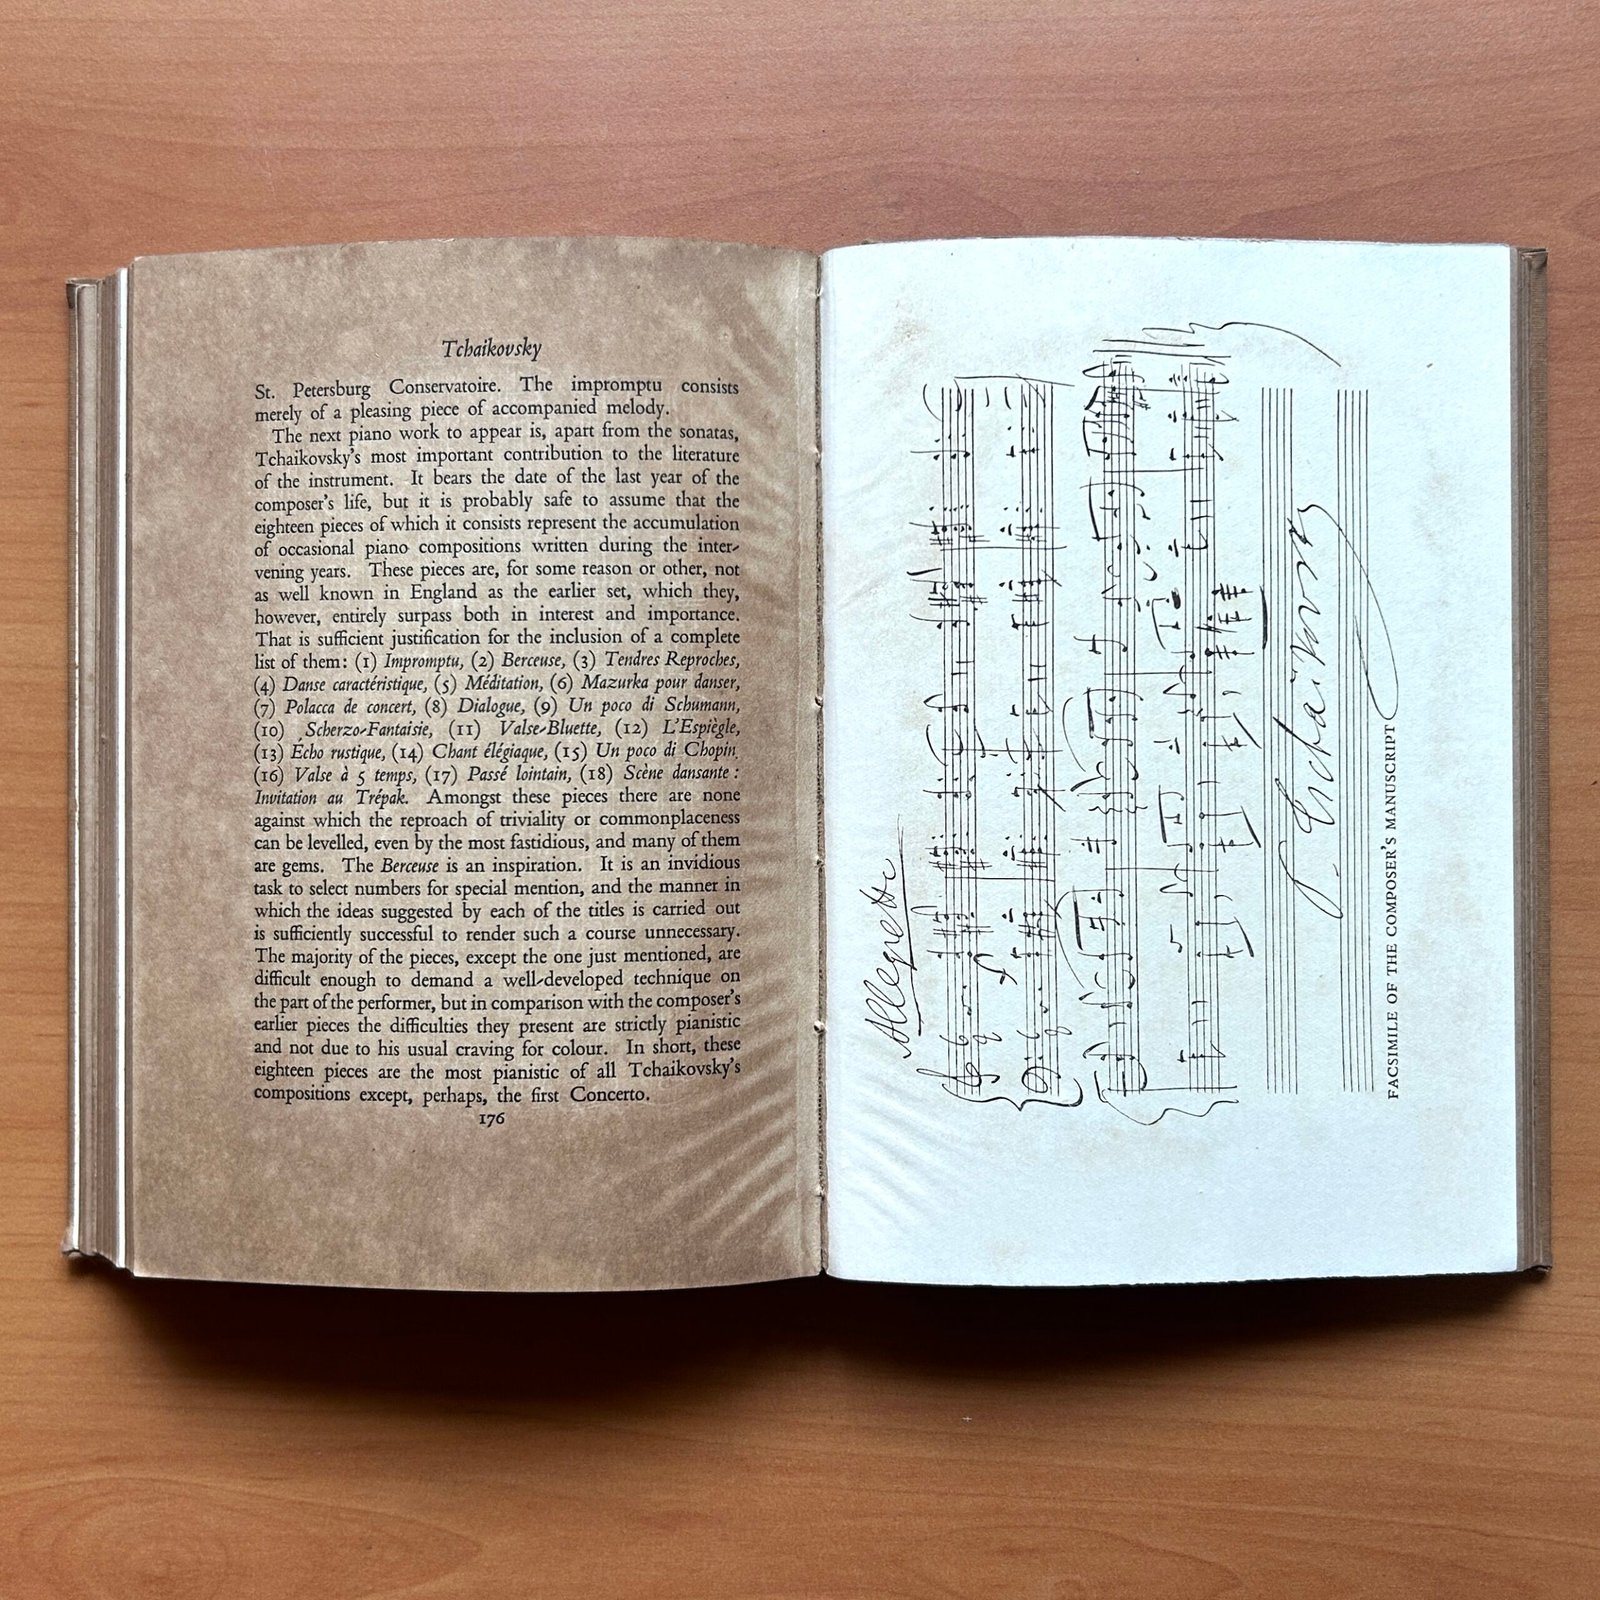 Tchaikovsky
St. Petersburg Conservatoire. The impromptu consists
merely of a pleasing piece of accompanied melody.
The next piano work to appear is, apart from the sonatas,
Tchaikovsky's most important contribution to the literature
of the instrument. It bears the date of the last year of the
composer's life, but it is probably safe to assume that the
eighteen pieces of which it consists represent the accumulation
of occasional piano compositions written during the inter-
vening years. These pieces are, for some reason or other, not
as well known in England as the earlier set, which they,
however, entirely surpass both in interest and importance.
That is sufficient justification for the inclusion of a complete
list of them: (1) Impromptu, (2) Berceuse, (3) Tendres Reproches,
(4) Danse caractéristique, (5) Méditation, (6) Mazurka pour danser,
(7) Polacca de concert, (8) Dialogue, (9) Un poco di Schumann,
(10) Scherzo-Fantaisie, (11) Valse-Bluette, (12) L'Espiègle,
(13) Écho rustique, (14) Chant élégiaque, (15) Un poco di Chopin,
(16) Valse à 5 temps, (17) Passé lointain, (18) Scène dansante:
Invitation au Trépak. Amongst these pieces there are none
against which the reproach of triviality or commonplaceness
can be levelled, even by the most fastidious, and many of them
are gems. The Berceuse is an inspiration. It is an invidious
task to select numbers for special mention, and the manner in
which the ideas suggested by each of the titles is carried out
is sufficiently successful to render such a course unnecessary.
The majority of the pieces, except the one just mentioned, are
difficult enough to demand a well-developed technique on
the part of the performer, but in comparison with the composer's
earlier pieces the difficulties they present are strictly pianistic
and not due to his usual craving for colour. In short, these
eighteen pieces are the most pianistic of all Tchaikovsky's
compositions except, perhaps, the first Concerto.
176
Allegretto
P. Tschaikovsky
FACSIMILE OF THE COMPOSER'S MANUSCRIPT